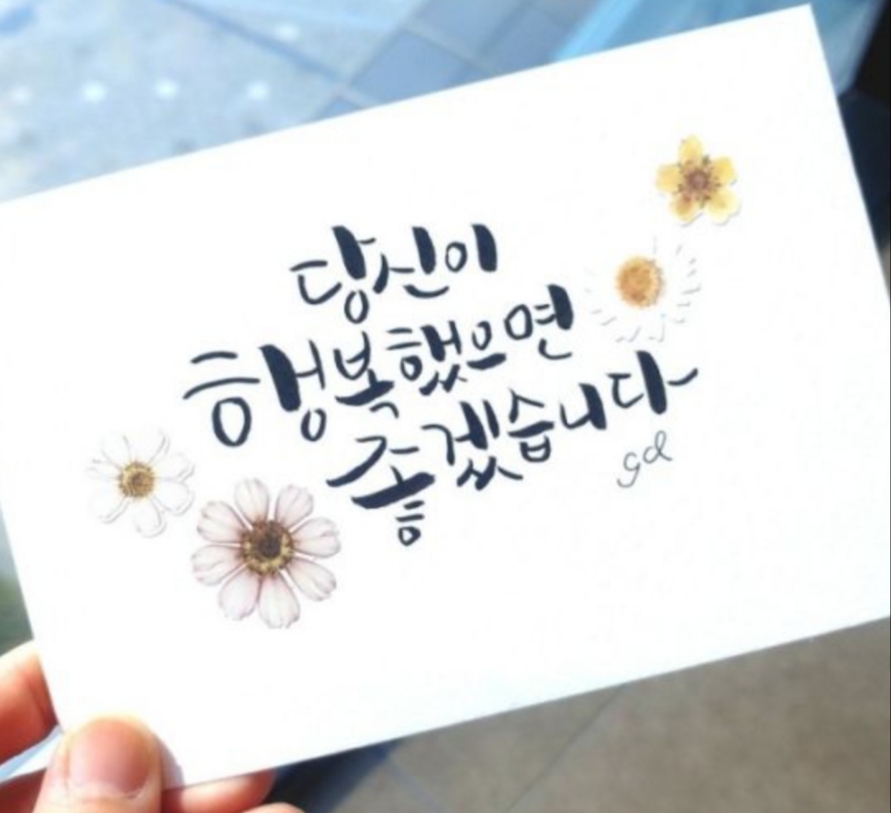 당신이
행복했으면
좋겠습니다